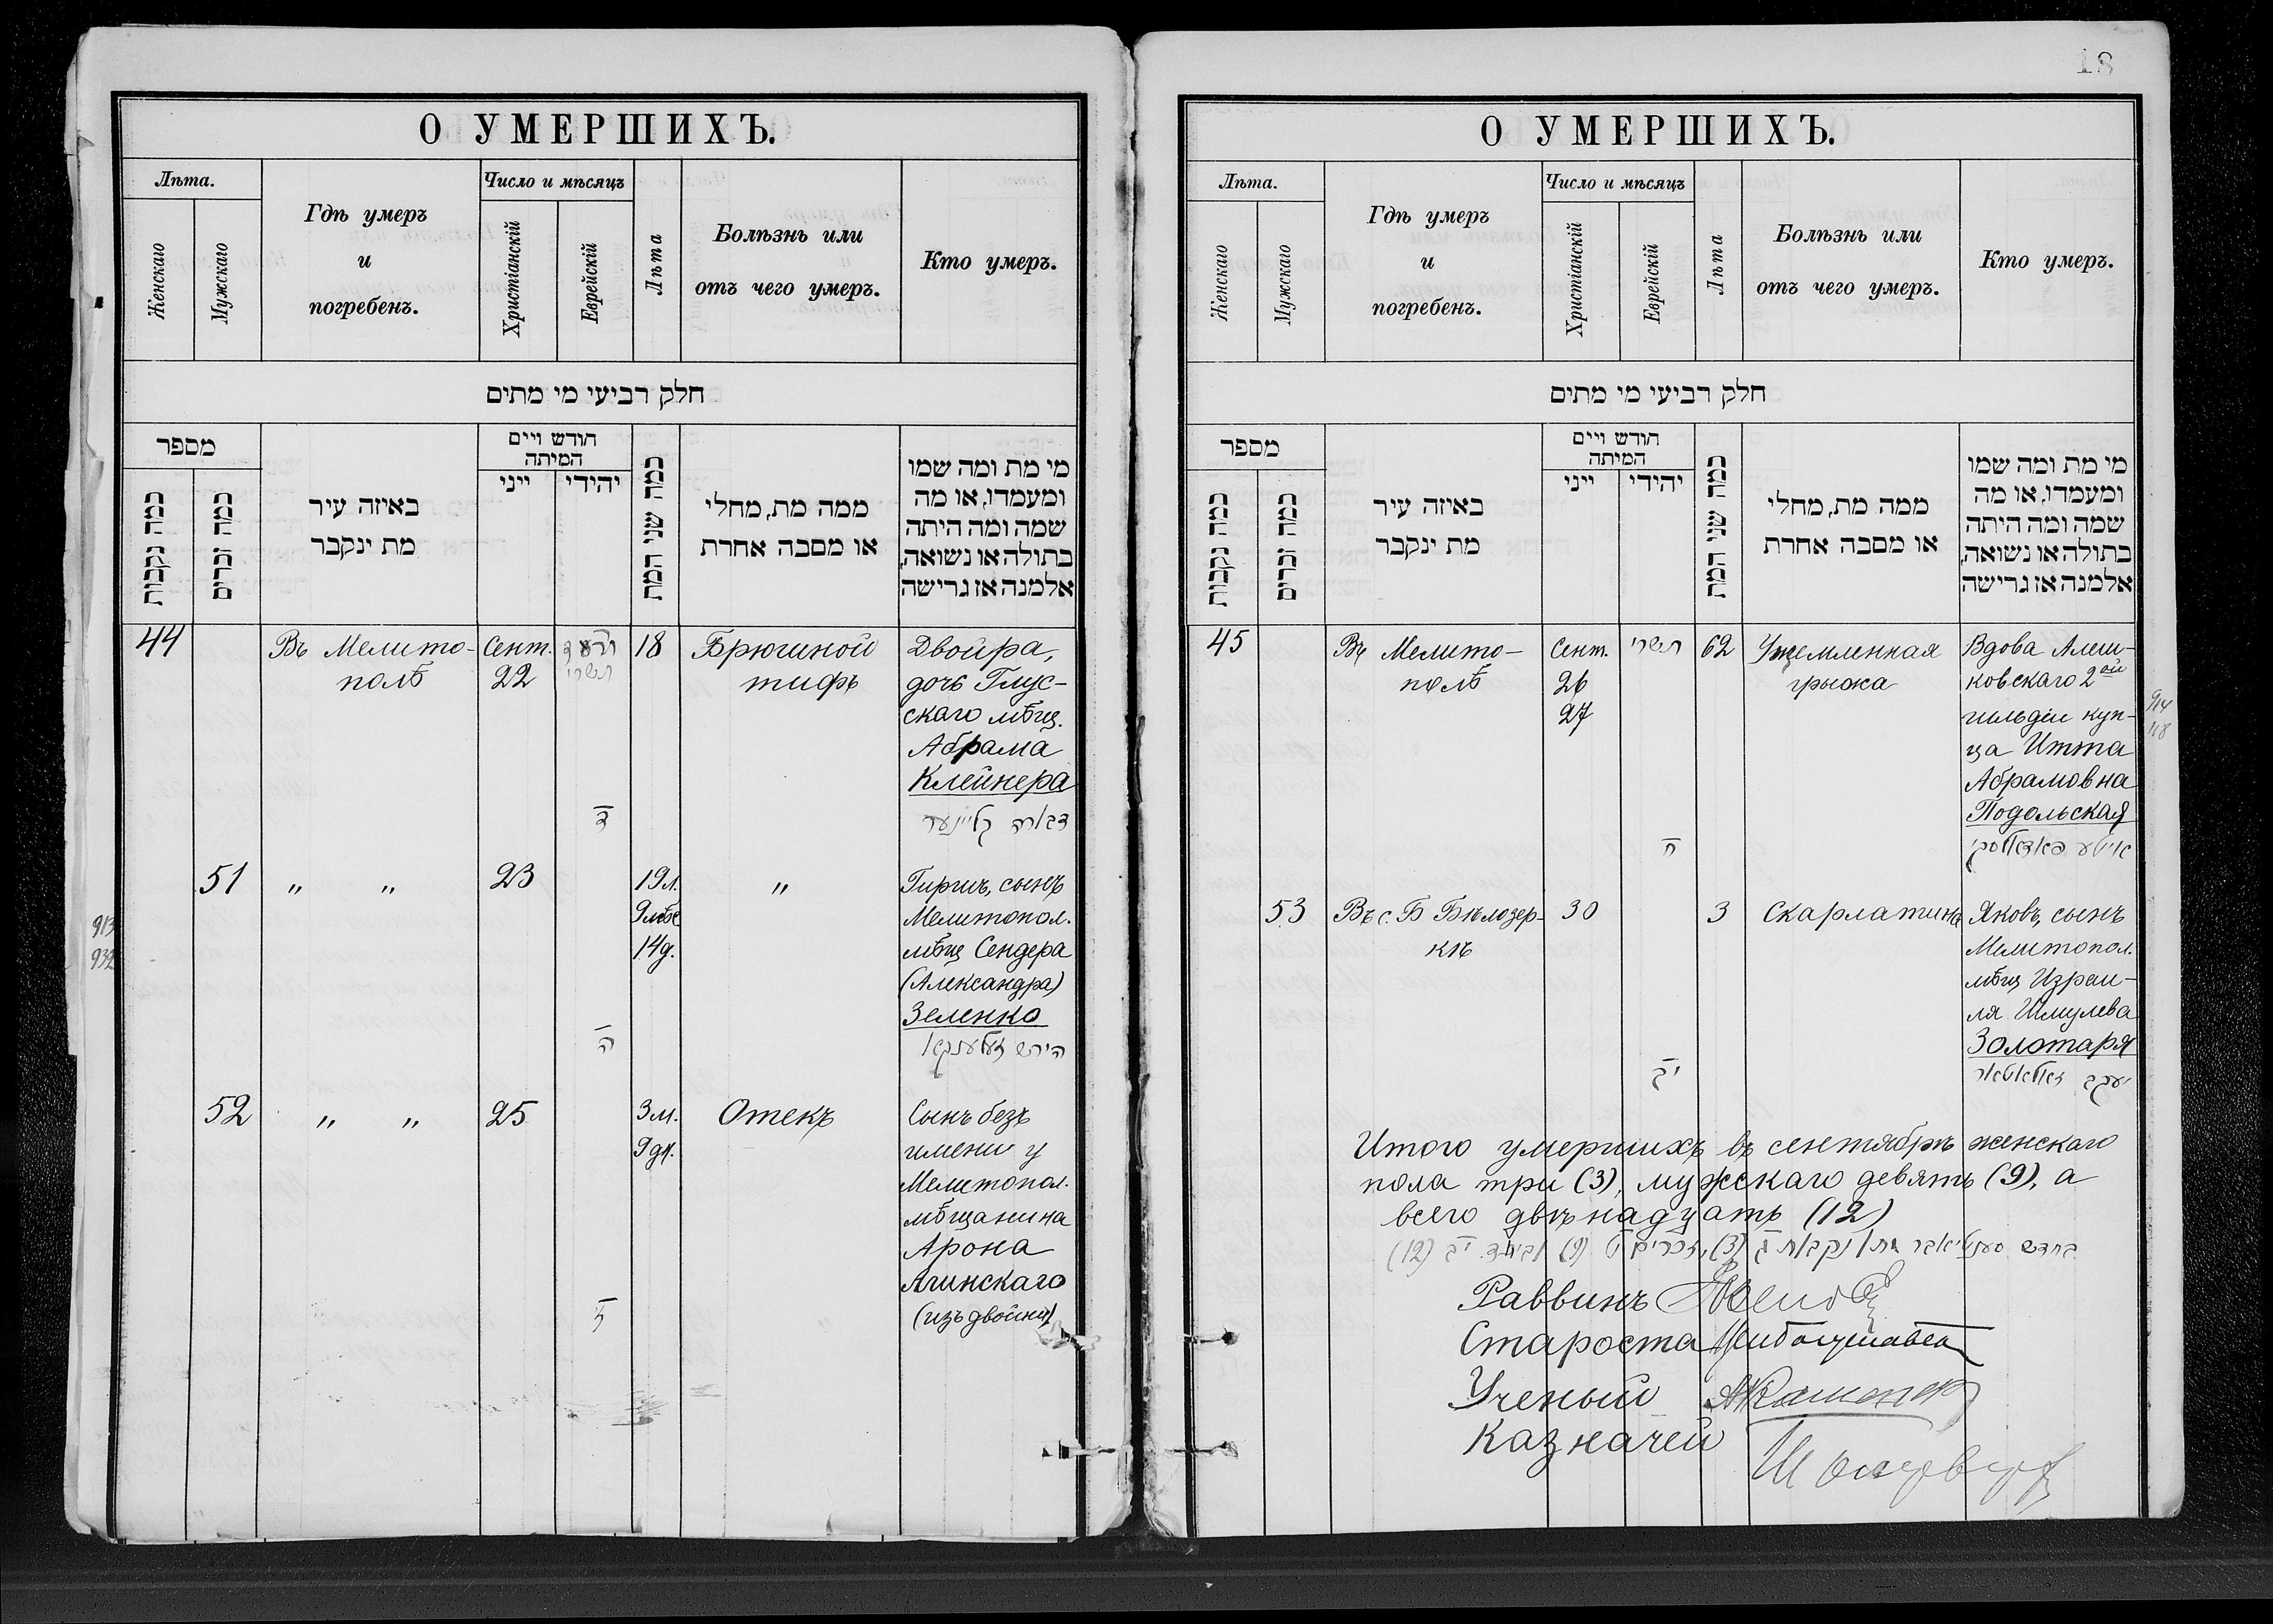 О УМЕРШИХЪ.
Лѣта.
Женскаго
Мужскаго
Гдѣ умеръ
и
погребенъ.
Число и мѣсяцъ
Христіанскій
Еврейскій
Лѣта
Болѣзнь или
отъ чего умеръ.
Кто умеръ.
חלק רביעי מי מתים
מספר
כמה נקבות
כמה זכרים
באיזה עיר
מת ינקבר
חודש ויים
המיתה
ייני
יהידי
כמה שני המת
ממה מת, מחלי
או מסבה אחרת
מי מת ומה שמו
ומעמדו, או מה
שמה ומה היתה
בתולה או נשואה,
אלמנה אז גרישה
44
Въ Мелито-
полѣ
Сент.
22
תשרי
ד
18
Брюшной
тифъ
Двойра,
дочь Глус-
скаго мѣщ.
Абрама
Клейнера
דבורה קליינער
51
" "
23
ה
19 л.
9 мѣс
14 д.
"
Гиршъ, сынъ
Мелитопол.
мѣщ Сендера
(Александра)
Зеленко
הירש זעלענקא
913
932
52
" "
25
ז
3 м.
9 дн.
Отекъ
Сынъ безъ
имени у
Мелитопол.
мѣщанина
Арона
Агинскаго
(изъ двойни)
18
О УМЕРШИХЪ.
Лѣта.
Женскаго
Мужскаго
Гдѣ умеръ
и
погребенъ.
Число и мѣсяцъ
Христіанскій
Еврейскій
Лѣта
Болѣзнь или
отъ чего умеръ.
Кто умеръ.
חלק רביעי מי מתים
מספר
כמה נקבות
כמה זכרים
באיזה עיר
מת ינקבר
חודש ויים
המיתה
ייני
יהידי
כמה שני המת
ממה מת, מחלי
או מסבה אחרת
מי מת ומה שמו
ומעמדו, או מה
שמה ומה היתה
בתולה או נשואה,
אלמנה אז גרישה
45
Въ Мелито-
полѣ
Сент.
26
27
תשרי
ח
62
Ущемленная
грыжа
Вдова Алеш-
ковскаго 2ой
гильдіи куп-
ца Итта
Абрамовна
Подольская
איטע פאדאלסקי
914
53
Въ с. Б Бѣлозер-
кѣ
30
יב
3
Скарлатина
Яковъ, сынъ
Мелитопол.
мѣщ Израи-
ля Шмулева
Золотаря
יעקב זאלאטאר
Итого умершихъ въ сентябрѣ женскаго
пола три (3), мужскаго девять (9), а
всего двѣнадцать (12)
בחדש סענטיאבר מתו נקבות ג (3), זכרים ט (9) וביחד יב (12)
Раввинъ
Староста
Ученый
Казначей